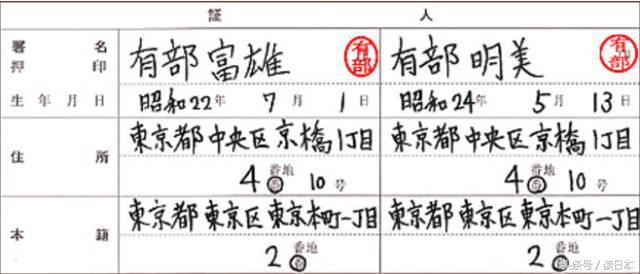 証人
署名押印 有部富雄 有部 有部明美 有部
生年月日 昭和22年7月1日 昭和24年5月13日
住所 東京都中央区京橋1丁目 東京都中央区京橋1丁目
4番地番10号 4番地番10号
本籍 東京都東京区東京本町一丁目 東京都東京区東京本町一丁目
2番地番 2番地番
头条号/蔼日本